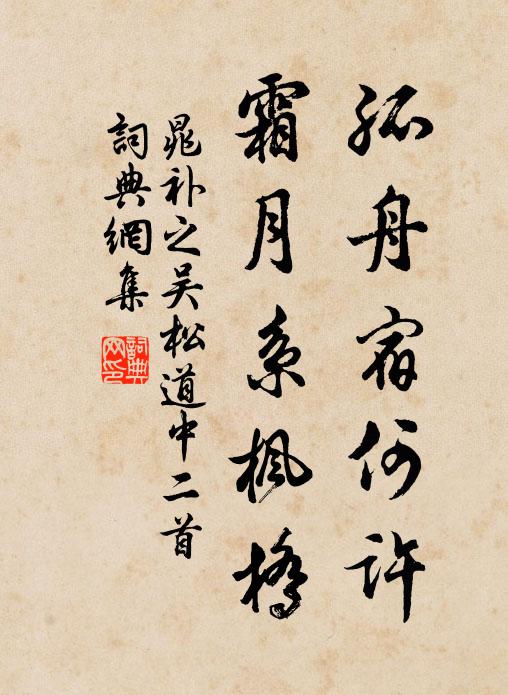 孤舟宿何許
霜月系楓橋
晁补之吴松道中二首
詞典網集
詞典網印